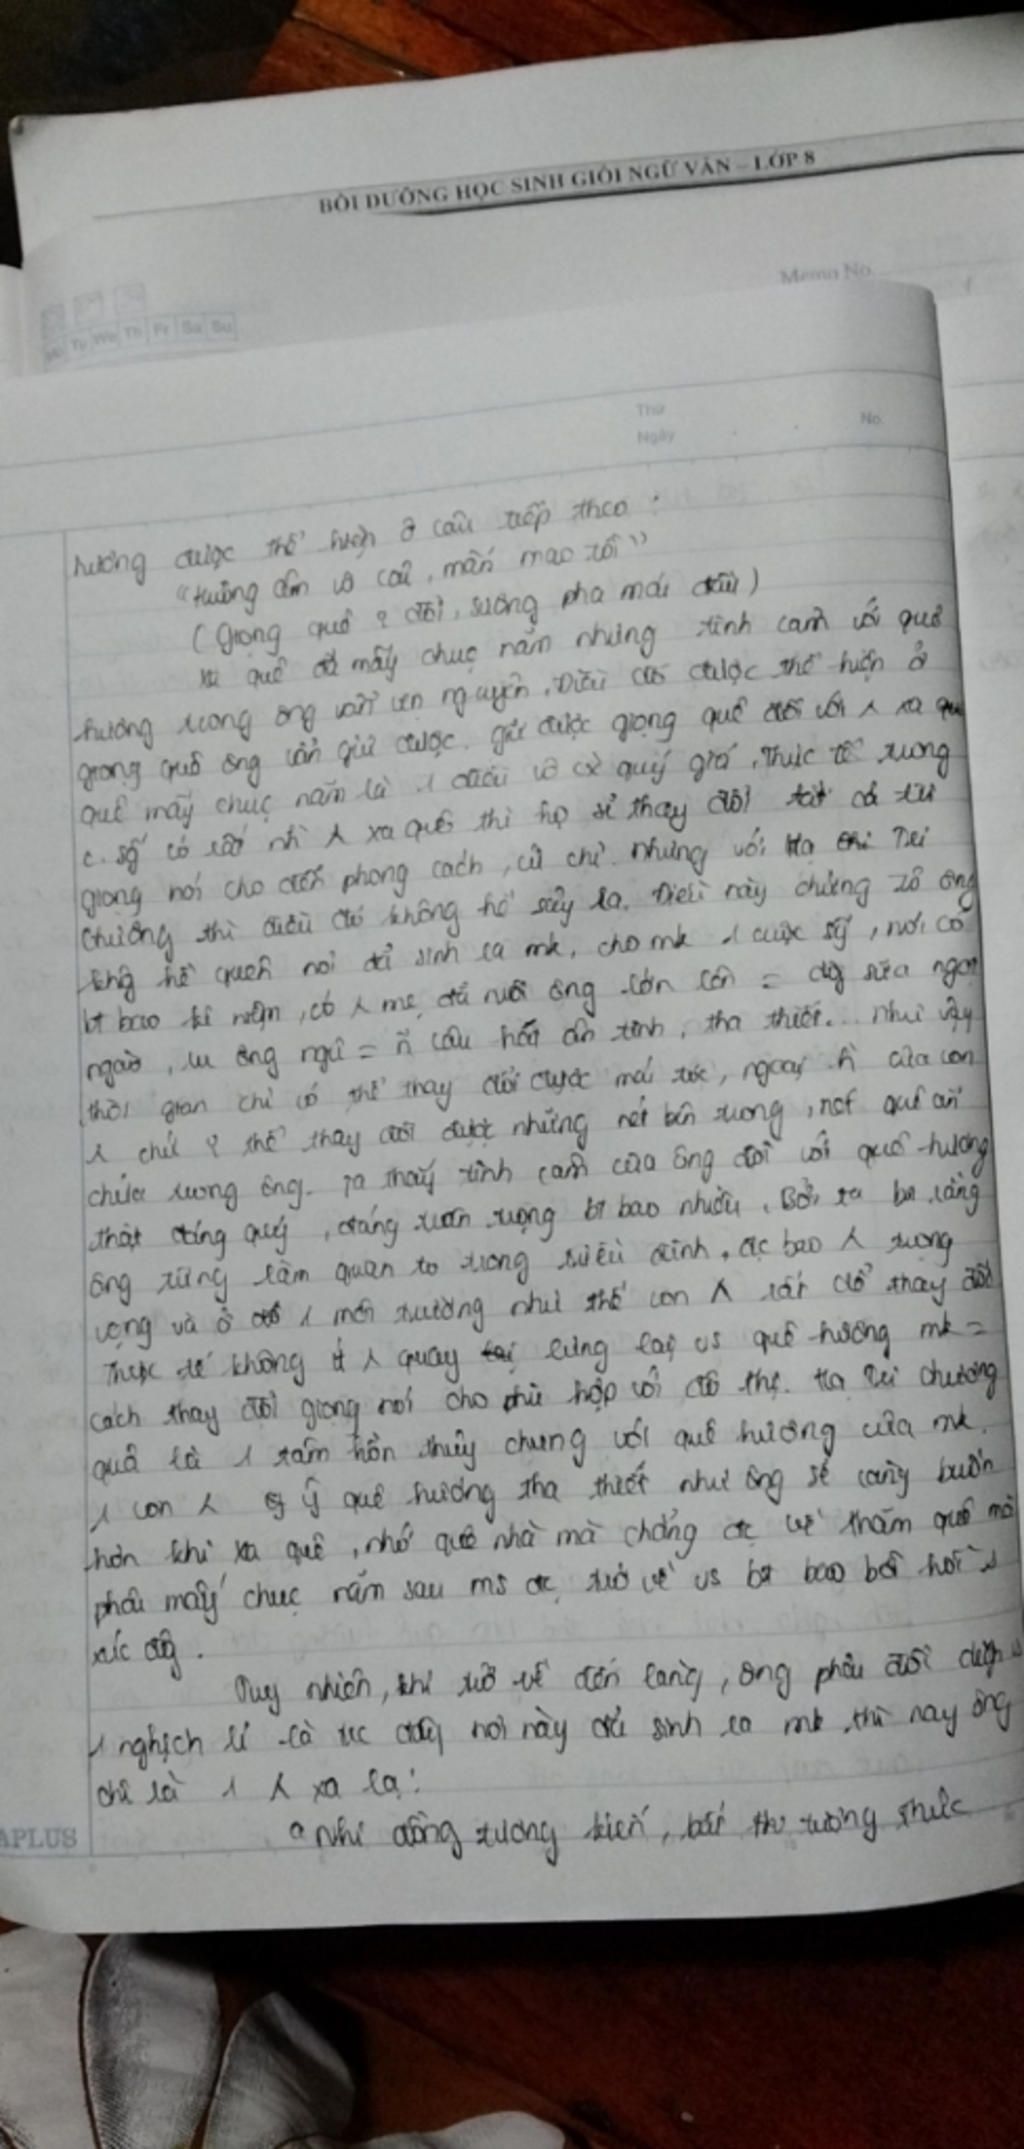 BỒI DƯỠNG HỌC SINH GIỎI NGỮ VĂN – LỚP 8
Memo No.
Mo Tu We Th Fr Sa Su
Thứ
Ngày
No.
hương được thể hiện ở câu tiếp theo :
"Hương âm vô cải, mấn mao tồi"
(Giọng quê ? đổi, sương pha mái đầu)
xa quê đã mấy chục năm nhưng tình cảm với quê
hương trong ông vẫn vẹn nguyên. Điều đó được thể hiện ở
giọng quê ông vẫn giữ được. giữ được giọng quê đối với λ xa quê
quê mấy chục năm là 1 điều vô cx quý giá. Thực tế trong
c. sg có rất nh λ xa quê thì họ sẽ thay đổi tất cả từ
giọng nói cho đến phong cách, cử chỉ. Nhưng với Hạ Tri
Chương thì điều đó không hề sảy ra. Điều này chứng tỏ ông
khg hề quên nơi đã sinh ra mk, cho mk 1 cuộc sg, nơi có
bt bao kỉ niệm, có λ mẹ đã nuôi ông lớn lên = dòg sữa ngọt
ngào, ru ông ngủ = ~n câu hát ân tình, tha thiết... Như vậy
thời gian chỉ có thể thay đổi được mái tóc, ngoại h của con
λ chứ ? thể thay đổi được những nét bên trong,
chứa trong ông. Ta thấy tình cảm của ông đối với quê hương
thật đáng quý, đáng trân trọng bt bao nhiêu. Bởi ta bt rằng
ông từng làm quan to trong triều đình, đc bao λ trọng
vọng và ở 1 môi trường như thế con λ rất dễ thay đổi
Thực tế không ít λ quay lưng lại vs quê hương mk =
cách thay đổi giọng nói cho phù hợp với đô thị. Hạ Tri Chương
quả là 1 tâm hồn thủy chung với quê hương của mk.
1 con λ iu quê hương tha thiết như ông sẽ càng buồn
hơn khi xa quê, nhớ quê nhà mà chẳng đc về thăm quê mà
phải mấy chục năm sau ms đc trở về vs bt bao bồi hồi
xúc độg.
Tuy nhiên, khi trở về đến làng, ông phải đối diện
1 nghịch lí là trc đây nơi này đã sinh ra mk thì nay ông
chỉ là 1 λ xa lạ :
"Nhi đồng tương kiến, bất tương thức
APLUS